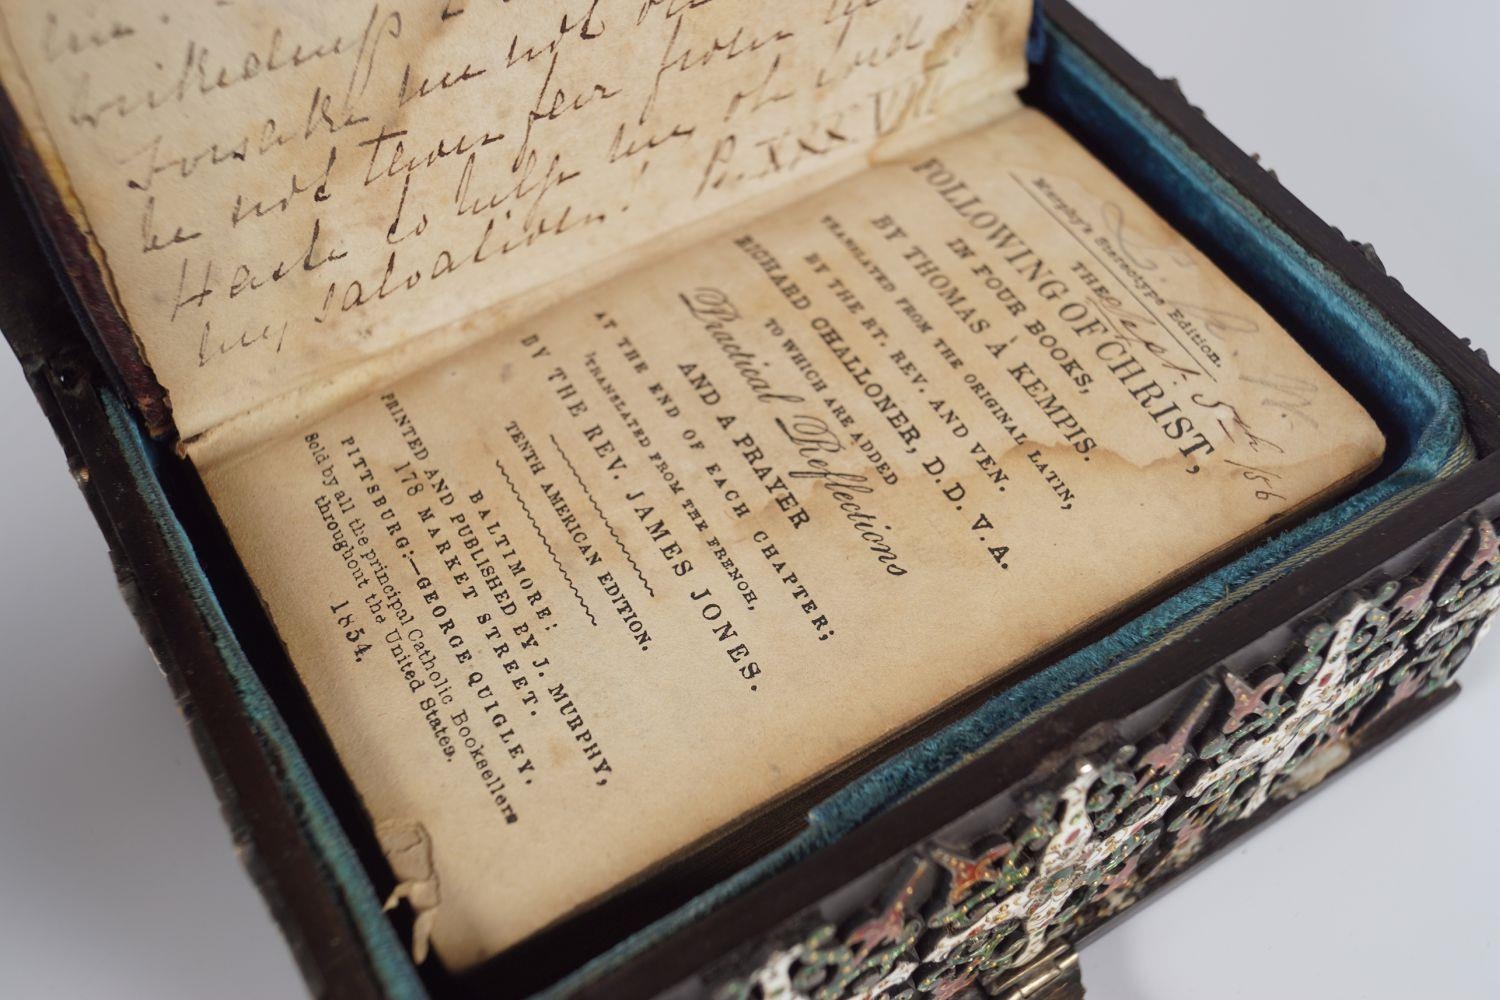 wickedness
forsake me not oh
be not thou far from
Haste to help me oh Lord
my salvation! P. XXXVII
Murphy's Stereotype Edition.
THE
FOLLOWING OF CHRIST,
Sept. 5th /56
IN FOUR BOOKS,
BY THOMAS À KEMPIS.
TRANSLATED FROM THE ORIGINAL LATIN,
BY THE RT. REV. AND VEN.
RICHARD CHALLONER, D. D. V. A.
TO WHICH ARE ADDED
Practical Reflections
AND A PRAYER
AT THE END OF EACH CHAPTER;
TRANSLATED FROM THE FRENCH,
BY THE REV. JAMES JONES.
TENTH AMERICAN EDITION.
BALTIMORE:
PRINTED AND PUBLISHED BY J. MURPHY,
178 MARKET STREET.
PITTSBURG:—GEORGE QUIGLEY.
Sold by all the principal Catholic Booksellers
throughout the United States.
1854.